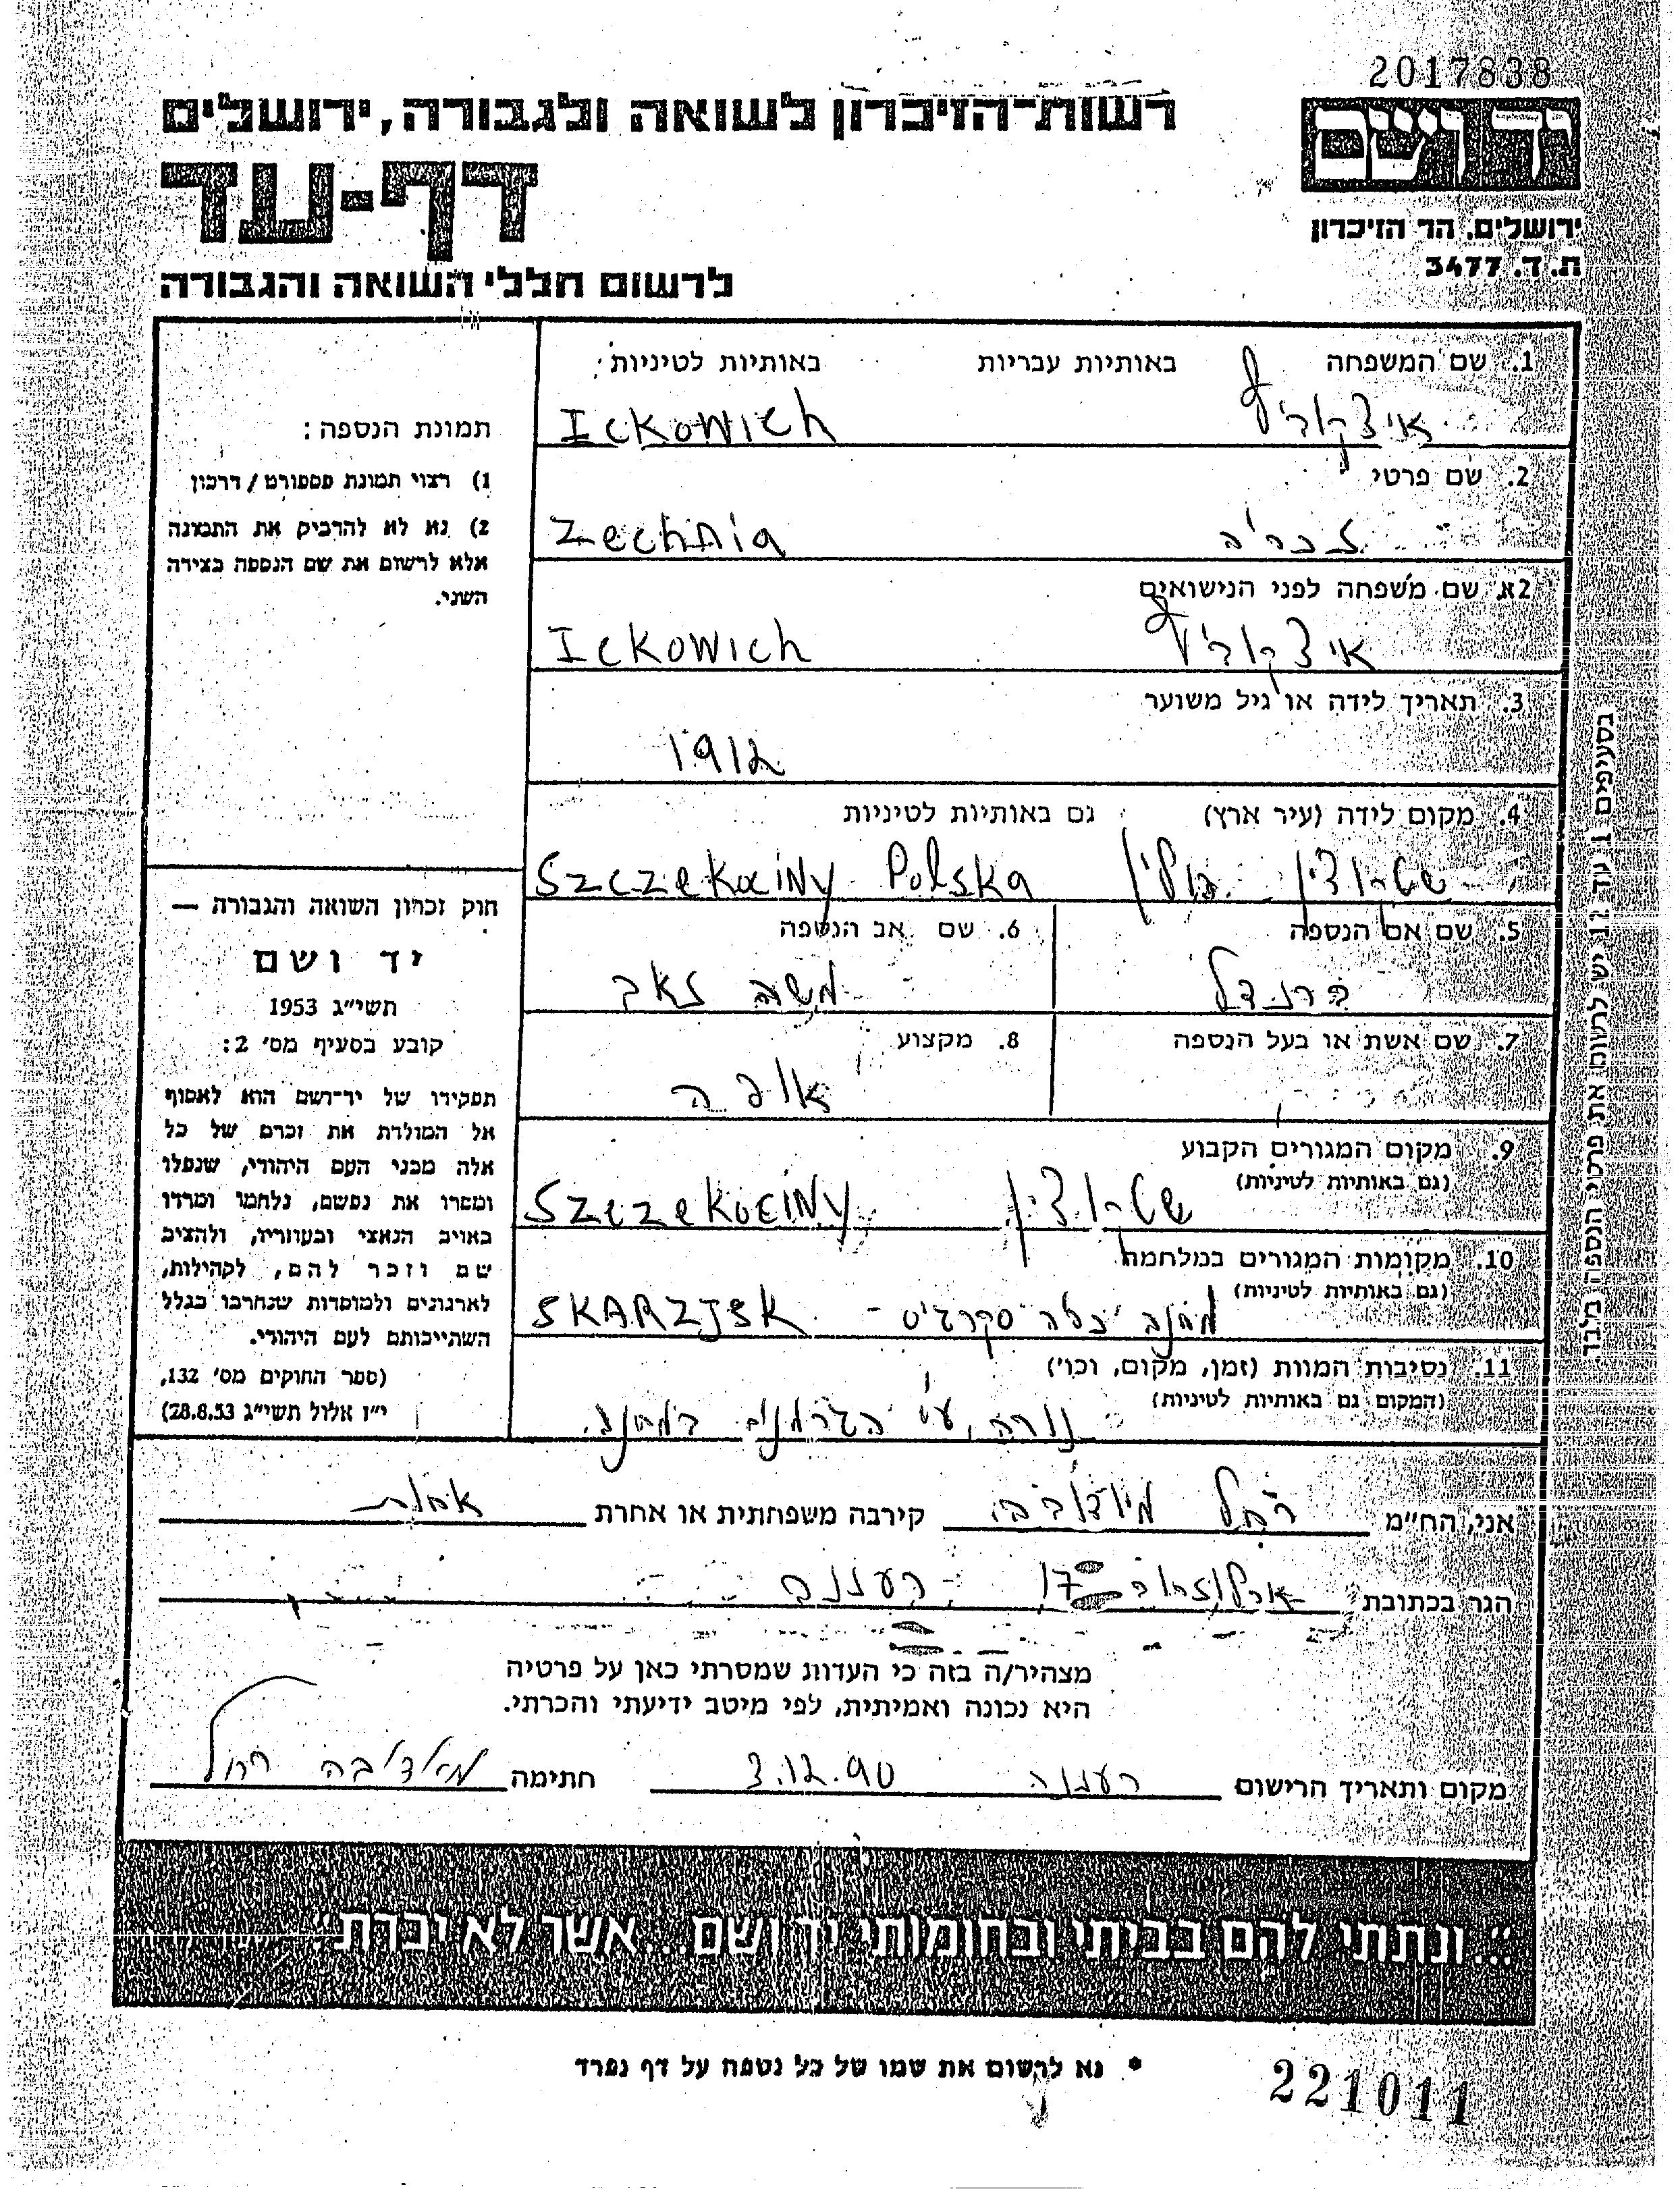 2017838
יד ושם
רשות-הזיכרון לשואה ולגבורה, ירושלים
דף-עד
ירושלים, הר הזיכרון
ת. ד. 3477
לרשום חללי השואה והגבורה
1. שם המשפחה באותיות עבריות באותיות לטיניות:
איצקוביץ Ickowich
2. שם פרטי
זכריה Zechria
2א. שם משפחה לפני הנישואים
איצקוביץ Ickowich
3. תאריך לידה או גיל משוער
1912
4. מקום לידה (עיר ארץ) גם באותיות לטיניות
פולין Szczekociny Polska
5. שם אם הנספה 6. שם אב הנספה
ברנדל משה זאב
7. שם אשת או בעל הנספה 8. מקצוע
אופה
9. מקום המגורים הקבוע
(גם באותיות לטיניות)
Szczekociny
10. מקומות המגורים במלחמה
(גם באותיות לטיניות)
מחנה SKARZJSK
11. נסיבות המוות (זמן, מקום, וכו')
(המקום גם באותיות לטיניות)
נורה ע"י הגרמנים במחנה.
תמונת הנספה:
1) רצוי תמונת פספורט / דרכון
2) נא לא להדביק את התמונה
אלא לרשום את שם הנספה בצידה
השני.
חוק זכרון השואה והגבורה —
יד ושם
תשי"ג 1953
קובע בסעיף מס' 2:
תפקידו של יד-ושם הוא לאסוף
אל המולדת את זכרם של כל
אלה מבני העם היהודי, שנפלו
ומסרו את נפשם, נלחמו ומרדו
באויב הנאצי ובעוזריו, ולהציב
שם וזכר להם, לקהילות,
לארגונים ולמוסדות שנחרבו בגלל
השתייכותם לעם היהודי.
(ספר החוקים מס' 132,
י"ז אלול תשי"ג 28.8.53)
בסעיפים 1 עד 12 יש לרשום את פרטי הנספה בלבד
אני, הח"מ רחל קירבה משפחתית או אחרת אחות
הגר בכתובת ארלוזרוב 17 רעננה
מצהיר/ה בזה כי העדות שמסרתי כאן על פרטיה
היא נכונה ואמיתית, לפי מיטב ידיעתי והכרתי.
מקום ותאריך הרישום רעננה 3.12.90 חתימה רחל
"... ונתתי להם בביתי ובחומותי יד ושם... אשר לא יכרת"
* נא לרשום את שמו של כל נספה על דף נפרד
221011